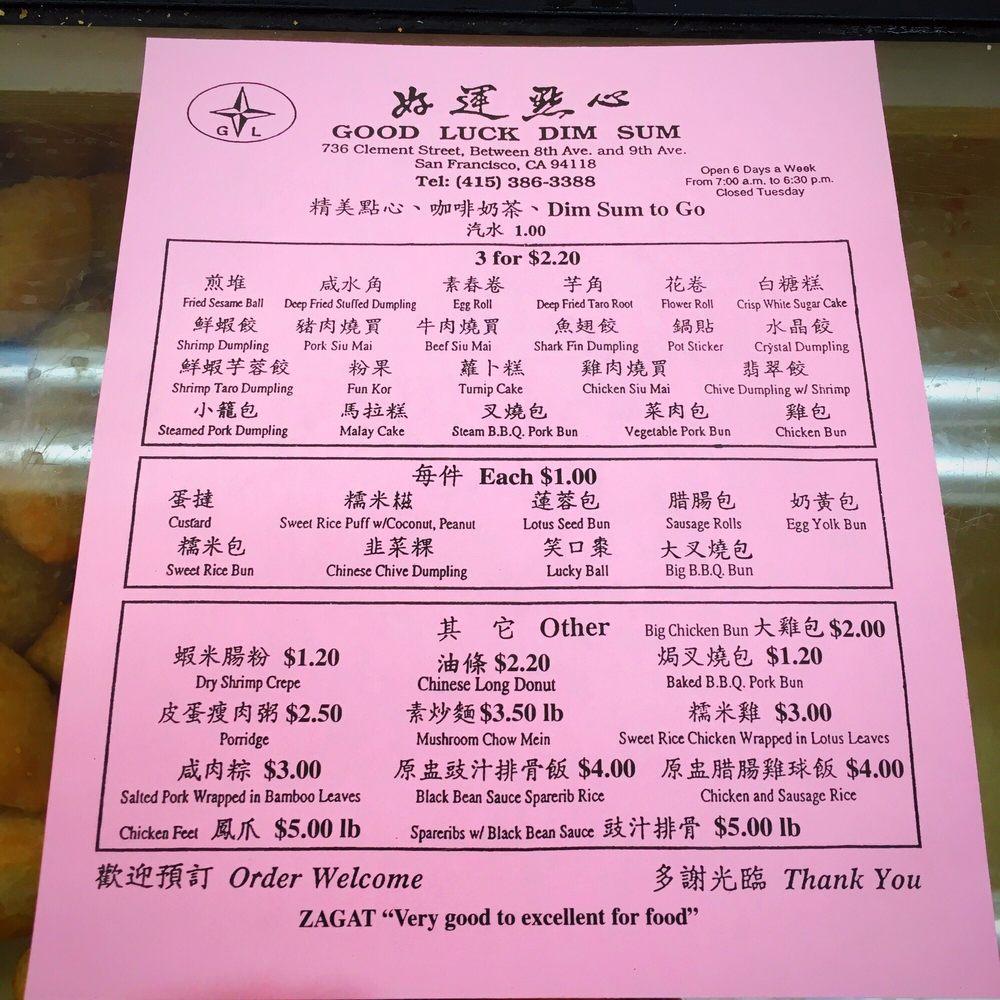 好運點心
G L
GOOD LUCK DIM SUM
736 Clement Street, Between 8th Ave. and 9th Ave.
San Francisco, CA 94118
Tel: (415) 386-3388
Open 6 Days a Week
From 7:00 a.m. to 6:30 p.m.
Closed Tuesday
精美點心、咖啡奶茶、Dim Sum to Go
汽水 1.00
3 for $2.20
煎堆 咸水角 素春卷 芋角 花卷 白糖糕
Fried Sesame Ball Deep Fried Stuffed Dumpling Egg Roll Deep Fried Taro Root Flower Roll Crisp White Sugar Cake
鮮蝦餃 豬肉燒買 牛肉燒買 魚翅餃 鍋貼 水晶餃
Shrimp Dumpling Pork Siu Mai Beef Siu Mai Shark Fin Dumpling Pot Sticker Crystal Dumpling
鮮蝦芋蓉餃 粉果 蘿卜糕 雞肉燒買 翡翠餃
Shrimp Taro Dumpling Fun Kor Turnip Cake Chicken Siu Mai Chive Dumpling w/ Shrimp
小籠包 馬拉糕 叉燒包 菜肉包 雞包
Steamed Pork Dumpling Malay Cake Steam B.B.Q. Pork Bun Vegetable Pork Bun Chicken Bun
每件 Each $1.00
蛋撻 糯米糍 蓮蓉包 腊腸包 奶黃包
Custard Sweet Rice Puff w/Coconut, Peanut Lotus Seed Bun Sausage Rolls Egg Yolk Bun
糯米包 韭菜粿 笑口棗 大叉燒包
Sweet Rice Bun Chinese Chive Dumpling Lucky Ball Big B.B.Q. Bun
其 它 Other Big Chicken Bun 大雞包 $2.00
蝦米腸粉 $1.20 油條 $2.20 焗叉燒包 $1.20
Dry Shrimp Crepe Chinese Long Donut Baked B.B.Q. Pork Bun
皮蛋瘦肉粥 $2.50 素炒麵 $3.50 lb 糯米雞 $3.00
Porridge Mushroom Chow Mein Sweet Rice Chicken Wrapped in Lotus Leaves
咸肉粽 $3.00 原盅豉汁排骨飯 $4.00 原盅腊腸雞球飯 $4.00
Salted Pork Wrapped in Bamboo Leaves Black Bean Sauce Sparerib Rice Chicken and Sausage Rice
Chicken Feet 鳳爪 $5.00 lb Spareribs w/ Black Bean Sauce 豉汁排骨 $5.00 lb
歡迎預訂 Order Welcome 多謝光臨 Thank You
ZAGAT “Very good to excellent for food”